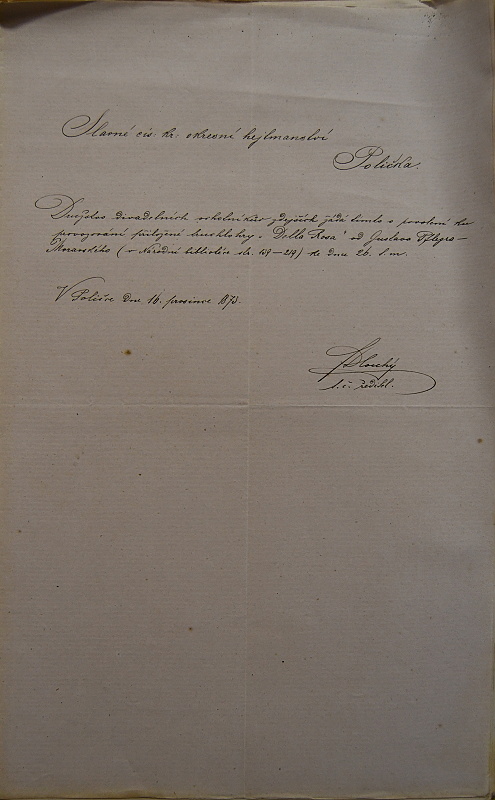 Slavné cís: kr: okresní hejtmanství
Polička.
Družstvo divadelních ochotníkův zdejších žádá tímto o povolení ku
provozování přiložené truchlohry „Della Rosa" od Gustava Pflegra-
Moravského (v Národní bibliotéce str. 169–219) ke dni 26. t. m.
V Poličce dne 16. prosince 1873.
Dlouhý
t. č. ředitel.